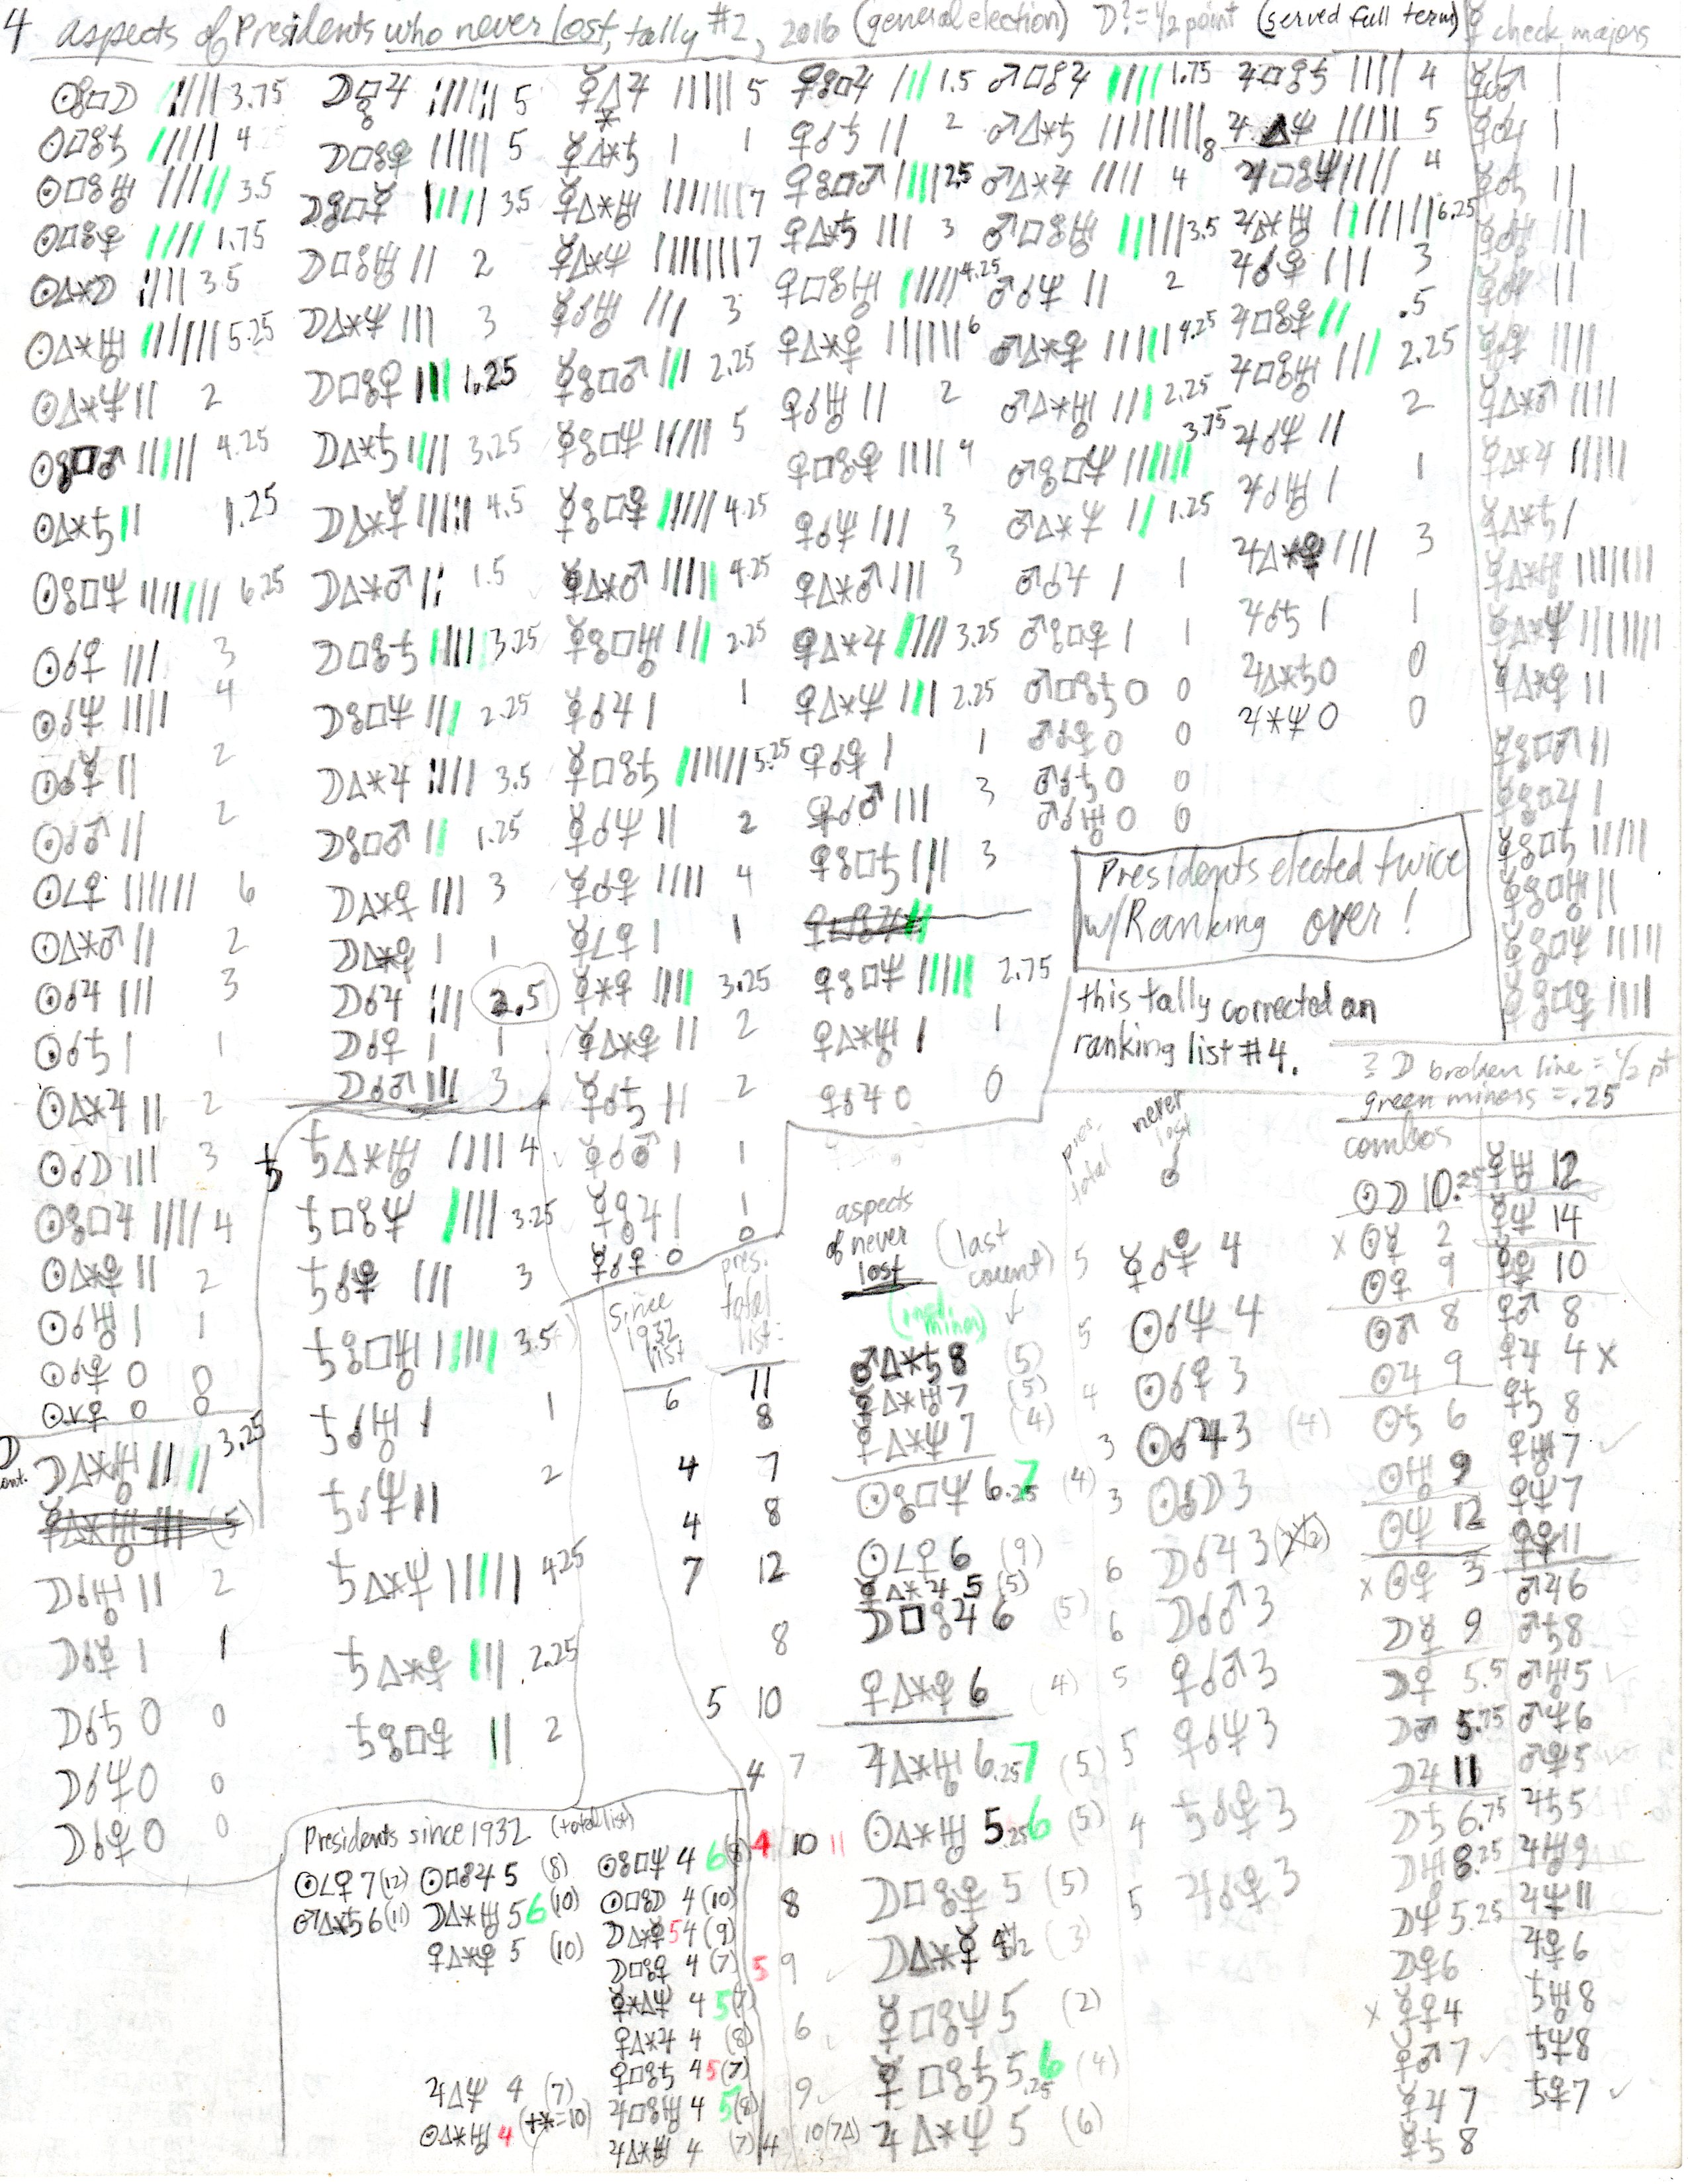 4 aspects of Presidents who never lost, tally #2, 2016 (general election) D? = 1/2 point (served full term) ☿ check majors
☉☍□☽ 3.75
☉□☍♄ 4
☉□☍♅ 3.5
☉□☍♀ 1.75
☉△⚹☽ 3.5
☉△⚹♅ 5.25
☉△⚹♆ 2
☉☍□♂ 4.25
☉△⚹♄ 1.25
☉☍□♆ 6.25
☉☌♀ 3
☉☌♆ 4
☉☌☿ 2
☉☌♂ 2
☉∠♀ 6
☉△⚹♂ 2
☉☌♃ 3
☉☌♄ 1
☉△⚹♃ 2
☉☌☽ 3
☉☍□♃ 4
2
☉☌♅ 1
0 0
0 0
☽ cont.
☽△⚹♅ 3.25
☽☌♅ 2
☽☌☿ 1
☽☌♄ 0 0
☽☌♆ 0 0
☽☌♀ 0 0
☽□☍♃ 5
5
3.5
☽□☍♅ 2
☽△⚹♆ 3
1.25
☽△⚹♄ 3.25
☽△⚹☿ 4.5
☽△⚹♂ 1.5
☽□☍♄ 3.25
☽☍□♆ 2.25
☽△⚹♃ 3.5
☽☍□♂ 1.25
3
1
☽☌♃ 2.5
1
☽☌♂ 3
♄
♄△⚹♅ 4
♄□☍♆ 3.25
3
♄☍□♅ 3.5
♄☌♅ 1
♄☌♆ 2
♄△⚹♆ 4.25
2.25
2
☿△⚹♃ 5
☿△⚹♄ 1
☿△⚹♅ 7
☿△⚹♆ 7
☿☌♅ 3
☿☍□♂ 2.25
☿☍□♆ 5
4.25
☿△⚹♂ 4.25
☿☍□♅ 2.25
☿☌♃ 1
☿□☍♄ 5.25
☿☌♆ 2
☿☌♀ 4
☿∠♀ 1
3.25
2
☿☌♄ 2
☿☌♂ 1
☿☍♃ 1
0
♀☍□♃ 1.5
♀☌♄ 2
♀☍□♂ 2.5
♀△⚹♄ 3
♀□☍♅ 4.25
6
♀☌♅ 2
4
♀☌♆ 3
♀△⚹♂ 3
♀△⚹♃ 3.25
♀△⚹♆ 2.25
1
♀☌♂ 3
♀☍□♄ 3
♀☍□♆ 2.75
♀△⚹♅ 1
♀☌♃ 0 0
♂□☍♃ 1.75
♂△⚹♄ 8
♂△⚹♃ 4
♂□☍♅ 3.5
♂☌♆ 2
4.25
♂△⚹♅ 2.25
♂☍□♆ 3.75
♂△⚹♆ 1.25
♂☌♃ 1
1
♂□☍♄ 0 0
0 0
♂☌♄ 0 0
♂☌♅ 0 0
♃□☍♄ 4
♃△♆ 5
♃□☍♆ 4
♃△⚹♅ 6.25
3
.5
♃□☍♅ 2.25
♃☌♆ 2
♃☌♅ 1
3
♃☌♄ 1
♃△⚹♄ 0 0
♃⚹♆ 0 0
☿☌♂
☿☌♃
☿☌♄
☿☌♅
☿☌♆
☿☌♀
☿△⚹♂
☿△⚹♃
☿△⚹♄
☿△⚹♅
☿△⚹♆
☿△⚹♀
☿☍□♂
☿☍□♃
☿☍□♄
☿☍□♅
☿☍□♆
☿☍□♀
Presidents elected twice
w/Ranking over!
this tally corrected on
ranking list #4.
? D broken line = 1/2 pt
green minors = .25
since 1932 list
pres. total list:
aspects of never lost (last count)
(incl. minor)
6 11 ♂△⚹♄ 8 (5)
8 ☿△⚹♅ 7 (5)
4 7 ☿△⚹♆ 7 (4)
4 8 ☉☍□♆ 6.25 7 (4)
7 12 ☉∠♀ 6 (9)
☿△⚹♃ 5 (5)
8 ☽□☍♃ 6 (5)
5 10 6 (4)
4 7 ♃△⚹♅ 6.25 7 (5)
4 10 11 ☉△⚹♅ 5.25 6 (5)
8 5 (5)
5 9 ☽△⚹☿ 4 1/2 (3)
6 ☿□☍♆ 5 (2)
9 ☿□☍♄ 5.25 6 (4)
4 10 (7△) ♃△⚹♆ 5 (6)
pres. total
never lost
☌
5 ☿☌♀ 4
5 ☉☌♆ 4
4 ☉☌♀ 3
3 ☉☌♃ 3 (4)
3 ☉☌☽ 3
6 ☽☌♃ 3
6 ☽☌♂ 3
5 ♀☌♂ 3
5 ♀☌♆ 3
4 3
5 3
combos
☉☽ 10.25
x ☉☿ 2
☉♀ 9
☉♂ 8
☉♃ 9
☉♄ 6
☉♅ 9
☉♆ 12
x 3
☽☿ 9
☽♀ 5.5
☽♂ 5.75
☽♃ 11
☽♄ 6.75
☽♅ 8.25
☽♆ 5.25
6
x ☿♀ 4
☿♂ 7
☿♃ 7
☿♄ 8
☿♅ 12
☿♆ 14
10
♀♂ 8
♀♃ 4 x
♀♄ 8
♀♅ 7
♀♆ 7
11
♂♃ 6
♂♄ 8
♂♅ 5
♂♆ 6
5
♃♄ 5
♃♅ 9
♃♆ 11
6
♄♅ 8
♄♆ 8
7
Presidents since 1932 (total list)
☉∠♀ 7 (12) ☉□☍♃ 5 (8) ☉☍□♆ 4 6 (8)
♂△⚹♄ 6 (11) ☽△⚹♅ 5 6 (10) ☉□☍☽ 4 (10)
5 (10) ☽△⚹☿ 5 4 (9)
4 (7)
☿⚹△♆ 4 5 (7)
♀△⚹♃ 4 (8)
4 5 (7)
♃△♆ 4 (7) ♃□☍♅ 4 5 (8)
☉△⚹♅ 4 (+⚹=10) ♃△⚹♅ 4 (7)